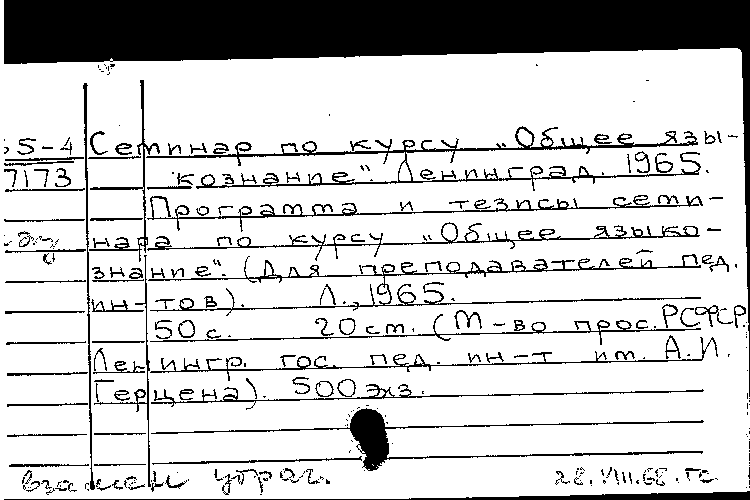 65-4 Семинар по курсу „Общее язы-
7173 кознание". Ленинград. 1965.
Программа и тезисы семи-
нара по курсу „Общее языко-
знание". (Для преподавателей пед.
ин-тов). Л., 1965.
50 с. 20 см. (М-во прос. РСФСР.
Ленингр. гос. пед. ин-т им. А.И.
Герцена). 500 экз.
взамен утрач. 28.VIII.68.